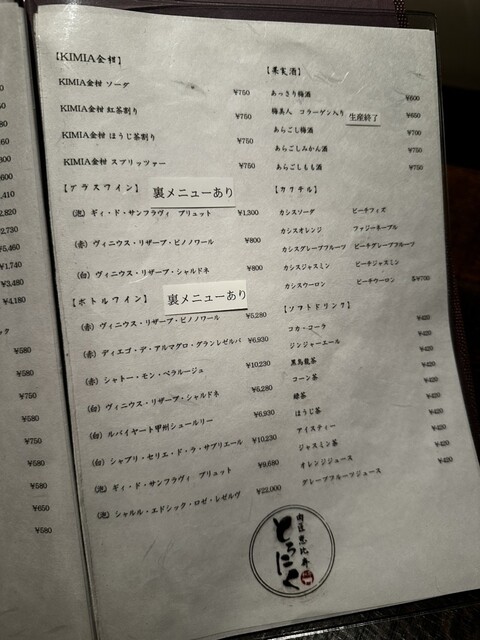 【KIMIA金柑】
KIMIA金柑 ソーダ ¥750
KIMIA金柑 紅茶割り ¥750
KIMIA金柑 ほうじ茶割り ¥750
KIMIA金柑 スプリッツァー ¥750
【グラスワイン】 裏メニューあり
(泡) ギィ・ド・サンフラヴィ ブリュット ¥1,300
(赤) ヴィニウス・リザーブ・ピノノワール ¥800
(白) ヴィニウス・リザーブ・シャルドネ ¥800
【ボトルワイン】 裏メニューあり
(赤) ヴィニウス・リザーブ・ピノノワール ¥5,280
(赤) ディエゴ・デ・アルマグロ・グランレゼルバ ¥6,930
(赤) シャトー・モン・ペラルージュ ¥10,230
(白) ヴィニウス・リザーブ・シャルドネ ¥5,280
(白) ルバイヤート甲州シュールリー ¥6,930
(白) シャブリ・セリエ・ド・ラ・サブリエール ¥10,230
(泡) ギィ・ド・サンフラヴィ ブリュット ¥9,680
(泡) シャルル・エドシック・ロゼ・レゼルヴ ¥22,000
【果実酒】
あっさり梅酒 ¥600
梅美人 コラーゲン入り 生産終了 ¥650
あらごし梅酒 ¥700
あらごしみかん酒 ¥750
あらごしもも酒 ¥750
【カクテル】
カシスソーダ ピーチフィズ
カシスオレンジ ファジーネーブル
カシスグレープフルーツ ピーチグレープフルーツ
カシスジャスミン ピーチジャスミン
カシスウーロン ピーチウーロン 各¥700
【ソフトドリンク】
コカ・コーラ ¥420
ジンジャーエール ¥420
黒烏龍茶 ¥420
コーン茶 ¥420
緑茶 ¥420
ほうじ茶 ¥420
アイスティー ¥420
ジャスミン茶 ¥420
オレンジジュース ¥420
グレープフルーツジュース ¥420
肉匠恵比寿
とろにく
,410
2,820
¥3,000
¥5,460
¥1,740
¥3,480
¥4,180
ック
¥580
¥580
¥750
¥580
¥750
¥580
¥580
¥650
¥580